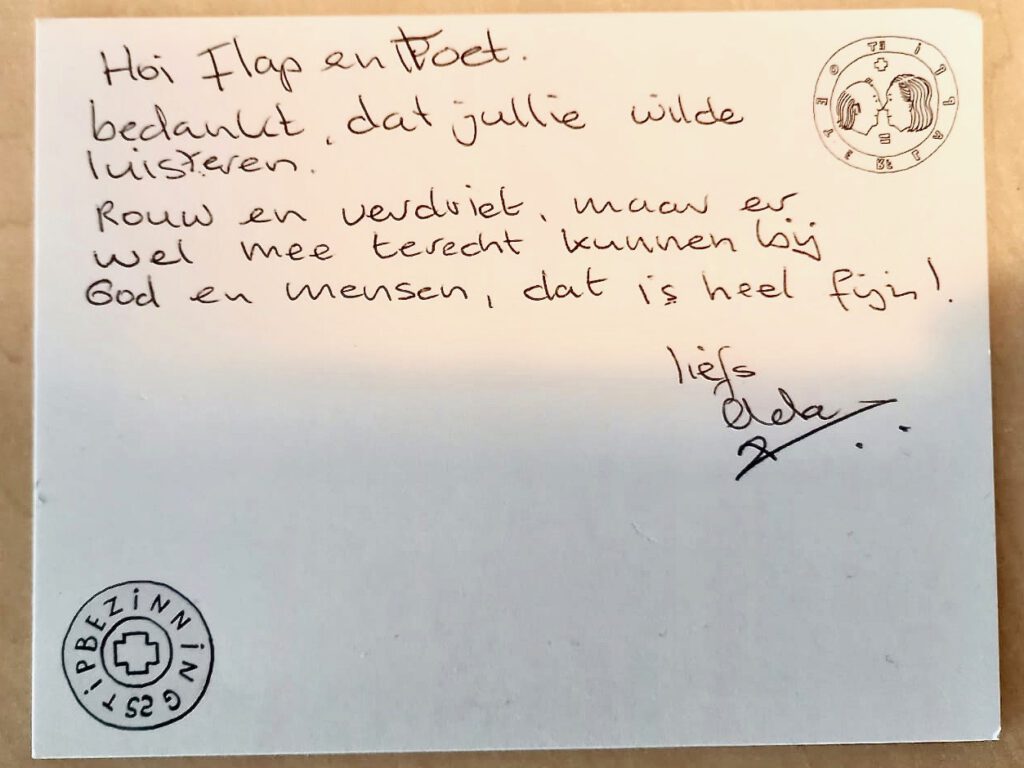 Hoi Flap en Froet.
bedankt, dat jullie wilde
luisteren.
Rouw en verdriet, maar er
wel mee terecht kunnen bij
God en mensen, dat is heel fijn!
liefs
Ada
BEZiNNiNGSSTiP